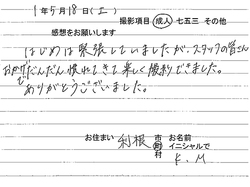 1年5月18日(土)
撮影項目 成人 七五三 その他
感想をお願いします
はじめは緊張していましたが、スタッフの皆さんの
おかげでだんだん慣れてきて楽しく撮影できました。
ありがとうございました。
お住まい 利根 市町村 お名前 イニシャルで K.M